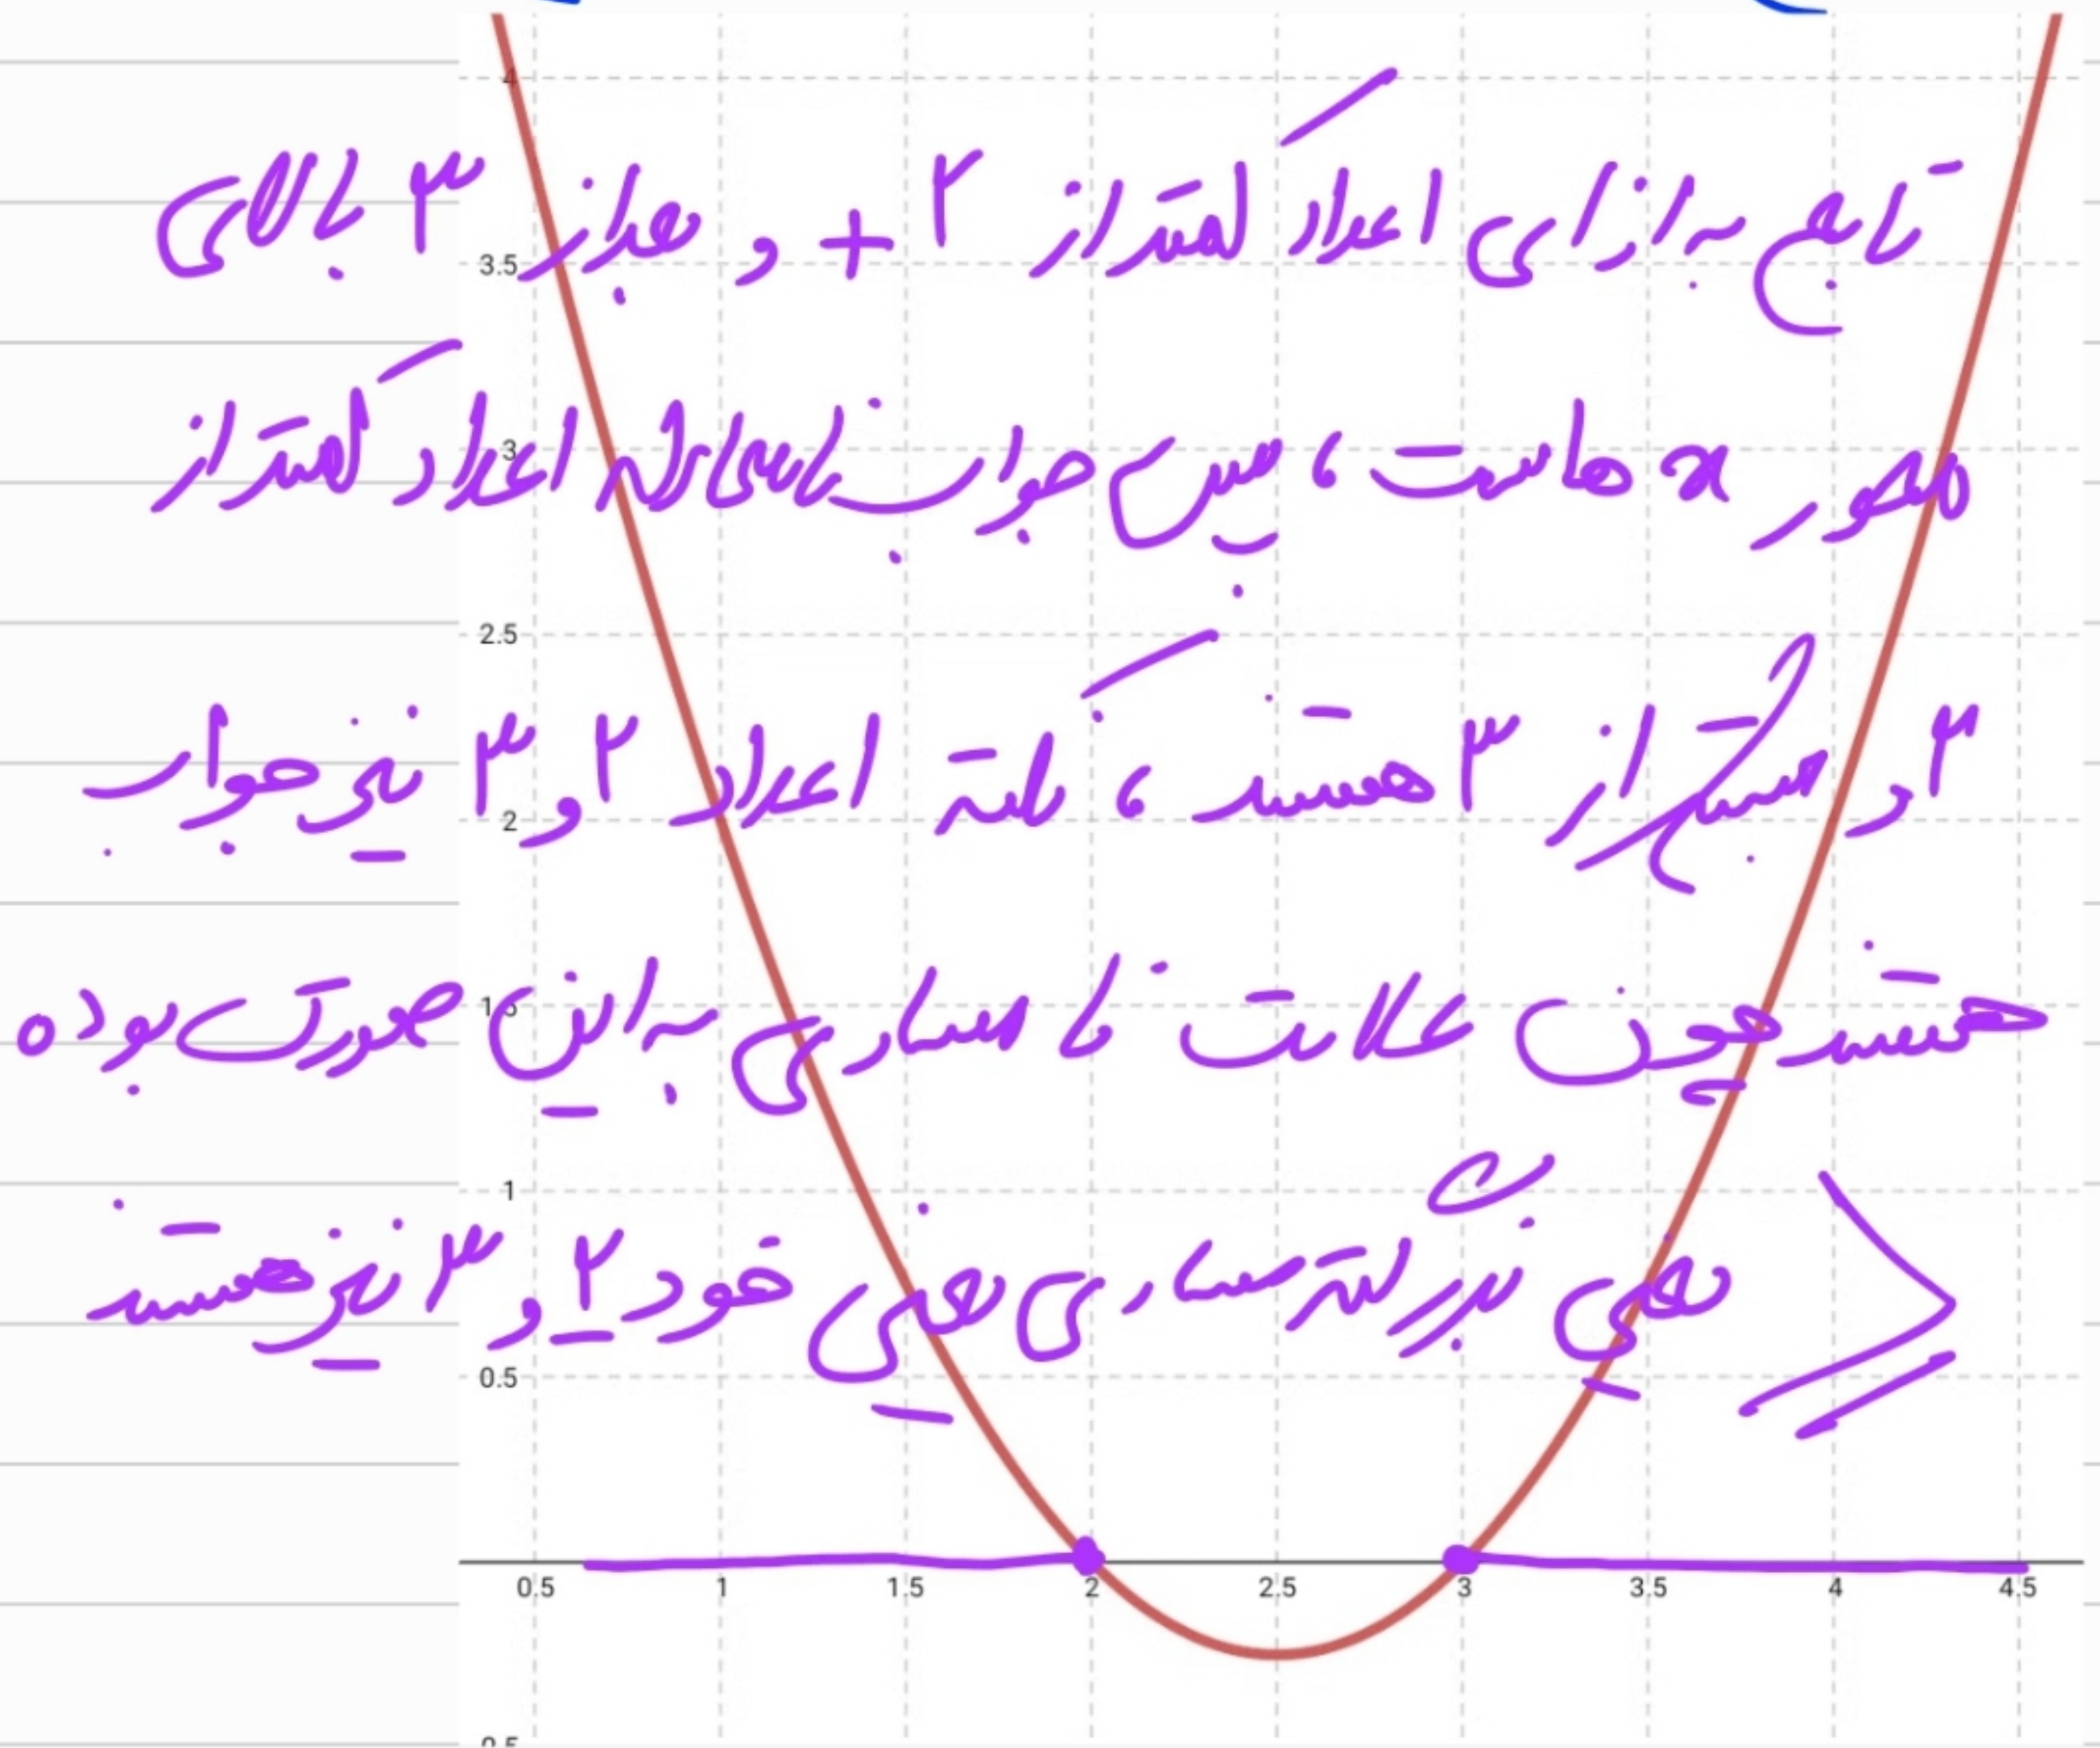 تابع به ازای اعداد کمتر از ۲ + و بعد از ۳ بالای
محور x هاست، پس جواب نامعادله اعداد کمتر از
۲ و بیشتر از ۳ هستند، البته اعداد ۲ و ۳ نیز جواب
هستند چون علامت نامساوی به این صورت بوده
≥ یعنی بزرگتر مساوی یعنی خود ۲ و ۳ نیز هستند
4
3.5
3
2.5
2
1
0.5
0.5 1 1.5 2 2.5 3 3.5 4 4.5